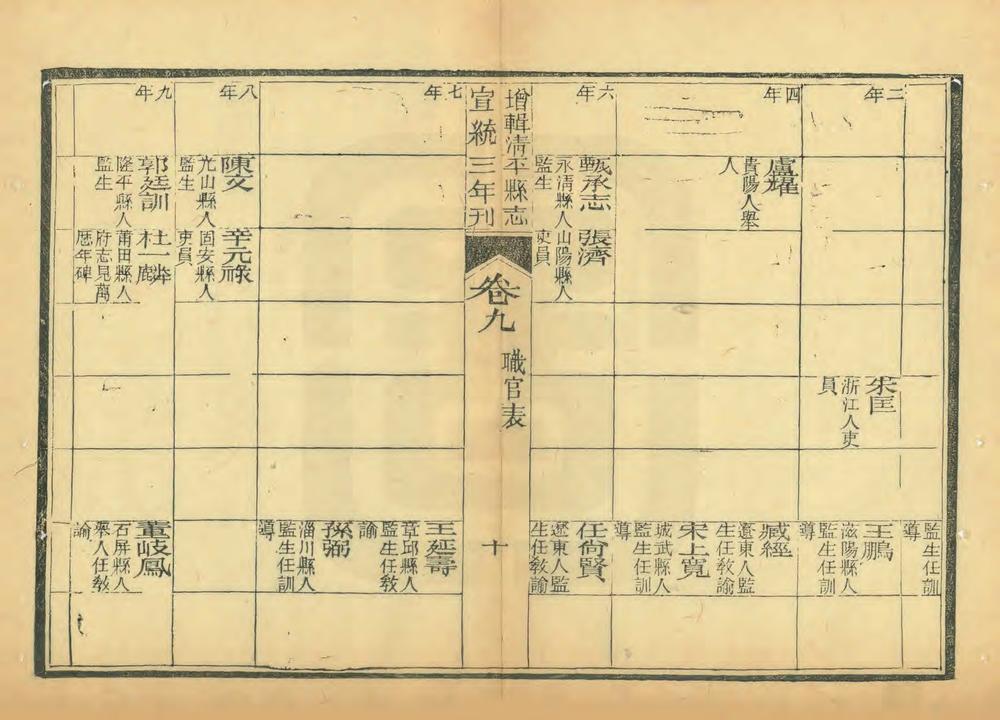 監生任訓
導
二年
朱匡
浙江人吏
員
王鵬
滋陽縣人
監生任訓
導
四年
盧耀
貴陽人舉
人
臧經
遼東人監
生任教諭
宋上寬
城武縣人
監生任訓
導
六年
甄承志
永清縣人
監生
張濟
山陽縣人
吏員
任尚賢
遼東人監
生任教諭
增輯清平縣志
宣統三年刊
卷九
職官表
十
七年
王延壽
章邱縣人
監生任教
諭
孫弼
淄川縣人
監生任訓
導
八年
陳文
光山縣人
監生
辛元祿
固安縣人
吏員
九年
郭廷訓
隆平縣人
監生
林一麟
莆田縣人
府志見萬
歷年碑
董岐鳳
石屏縣人
舉人任教
諭